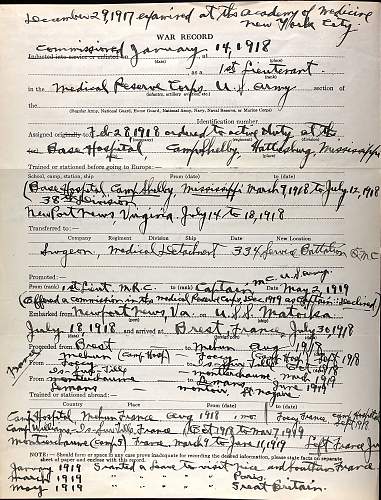 December 29, 1917 examined at the academy of medicine
New York City
WAR RECORD
Commissioned January 14, 1918
Inducted into service or enlisted on
(date) (place)
as a 1st Lieutenant
(rank)
in the Medical Reserve Corps, U.S. Army section of
(infantry, artillery, etc.)
the
(Regular Army, National Guard, Home Guard, National Army, Navy, Naval Reserve, or Marine Corps)
Identification number
Assigned originally to Feb 28 1918 ordered to active duty at the
Base Hospital, Camp Shelby, Hattisburg, Mississippi
(place)
Trained or stationed before going to Europe:—
School, camp, station, ship From (date) to (date)
(Base Hospital Camp Shelby, Mississippi March 7, 1918 to July 12, 1918
38th Division
Newport News Virginia. July 14 to 18, 1918
Transferred to:—
Company Regiment Division Ship Date New Location
Surgeon, Medical Detachment 334 Service Battalion Q.M.C
Promoted:—
From (rank) 1st Lieut. M.R.C. to (rank) Captain M.C. U.S. Date May 2, 1919
(Offered a commission in the medical Reserve Corps, Dec 1919 as Captain: declined)
Embarked from Newport News, Va. on U.S.S. Matsika
July 18 1918 and arrived at Brest, France, July 30 1918
Proceeded from Brest to Mehun Aug 1918
Mehun (Camp Hosp) Foecy (Camp Hosp) Sept 1918
Foecy Is-sur-Tille Oct 1918
Is-sur-Tille Monterchaume March 1919
Monterchaume Le Mans June 1919
Le Mans
Trained or stationed abroad:—
Country Place From (date) to (date)
Camp Hospital Mehun France Aug 1918 1 mo. Foecy, France, Camp Hospital Sept 1918
Camp Williams—Is-sur-Tille, France (Oct 1918 to Mar 7, 1919
Monterchaume (Camp) France, March 9 to June 11, 1919 Left France
NOTE:— Should form or space in any case prove inadequate for recording the desired information, please state facts on separate
sheet of paper and enclose with this record.
January 1919 Granted a leave to visit Nice and Southern France
March 1919 " " " " Paris.
May 1919 " " " " Great Britain.